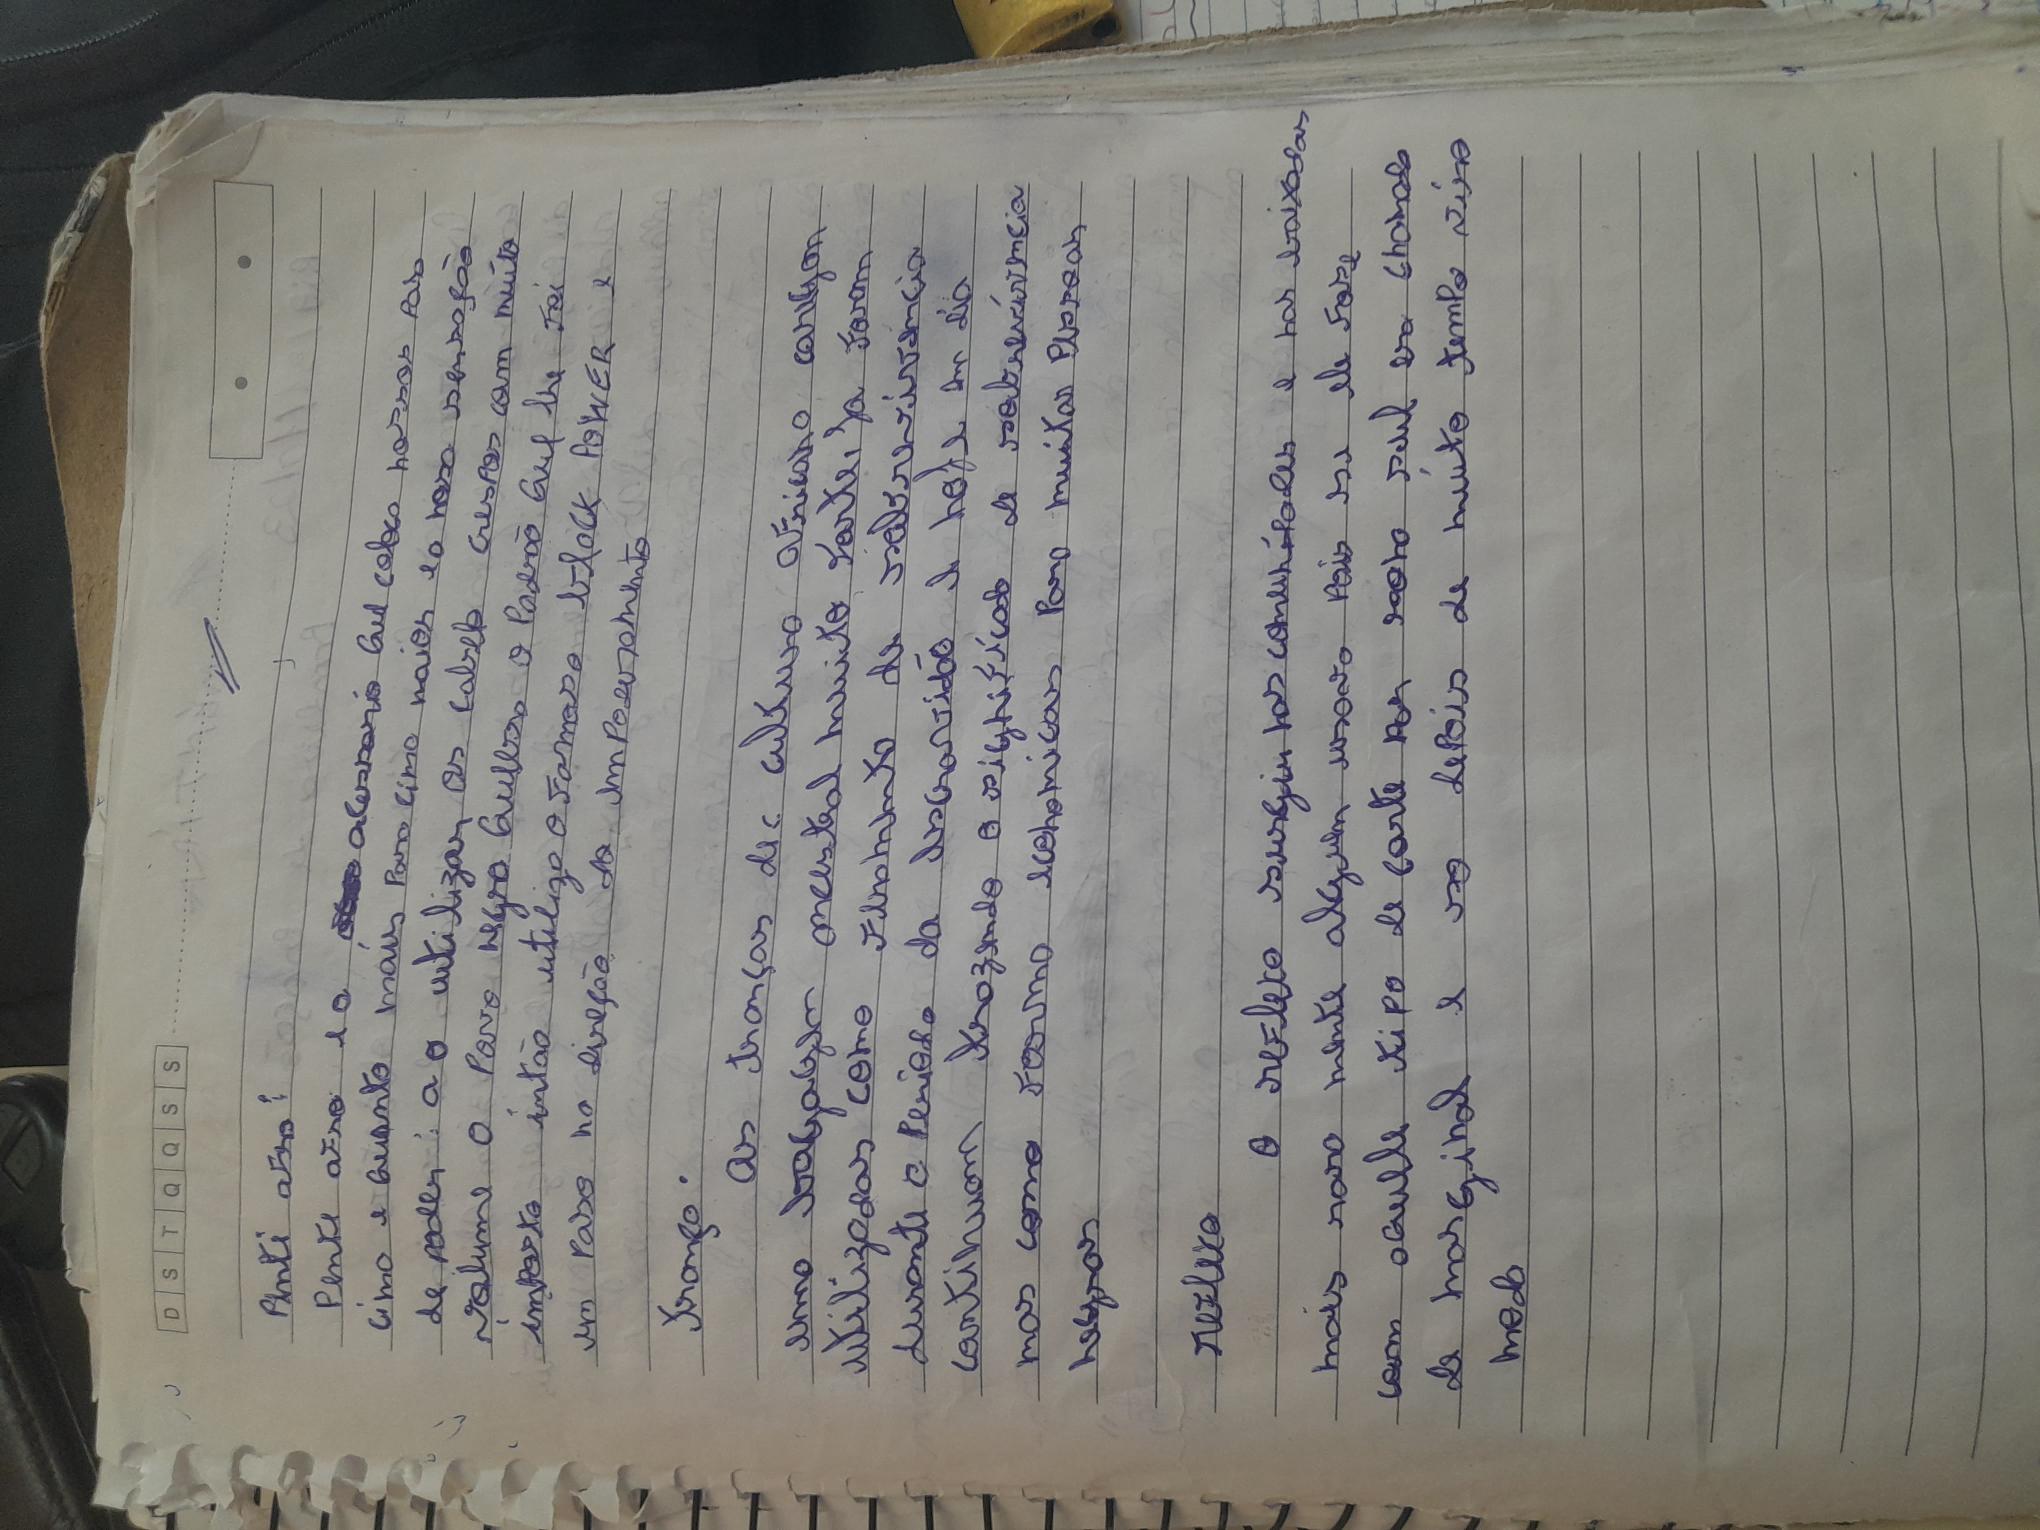 D S T Q Q S S
Penti afro:
Pente afro e o acessorio que coloco nossas pas
cima e quanto mais para cima maior e a nossa sensação
de poder: a o utilizar os cabelo crespos com muito
volume o Povo negro quebra o Padrão que lhe foi
imposto então utiliza o famoso black POWER e
um Passo na direção do empoeramento
trança.
as tranças de c cultura africana carregam
uma bagagem ancestral muito forte, Ja foram
utilizadas como Feramenta de sobrevivência
durante o Periodo da escravidão e hoje em dia
continuam trazendo o significado de sobrevivência
mas como forma economicas Para muitas Pessoas
negras
reflexo
o reflexo surgiu nas comunidades e nas baixadas
mais raro mente alguem usava Pois se ele fosse
com aquele tipo de corte no seu era chamado
de marginal e so depois de muito tempo viro
moda